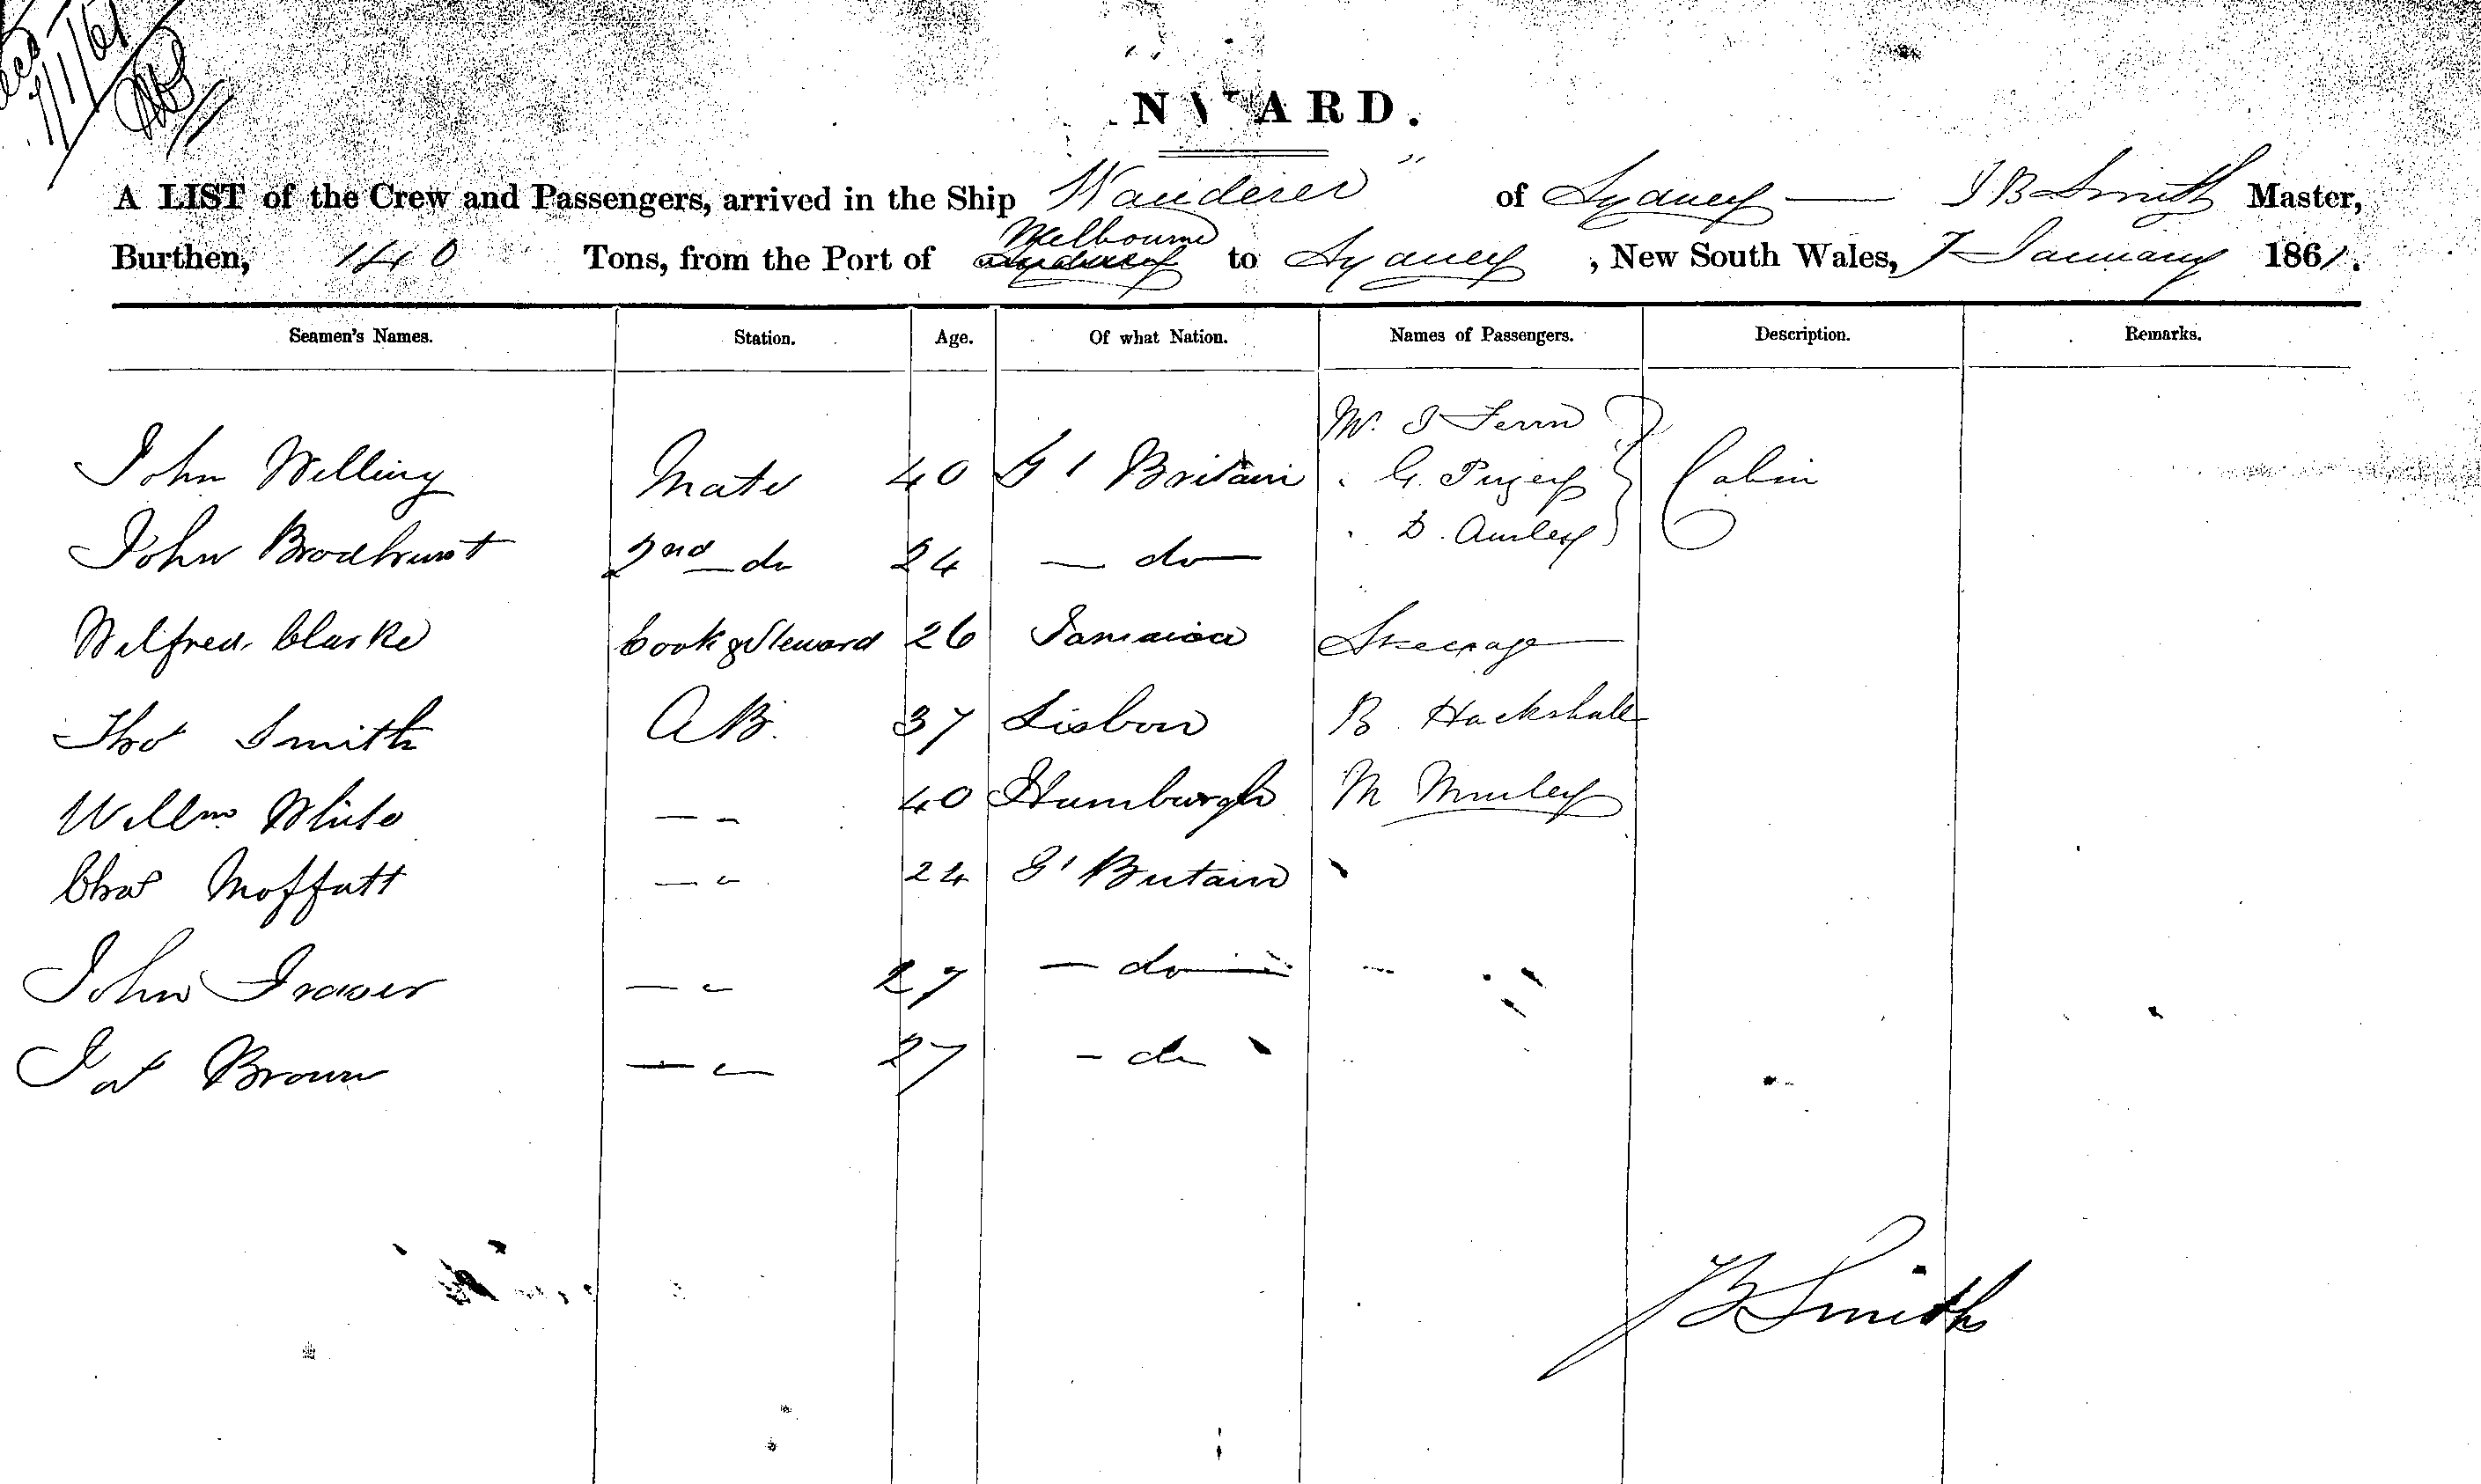 7/1/61
NWARD.
A LIST of the Crew and Passengers, arrived in the Ship "Wanderer" of Sydney — J B Smith Master,
Burthen, 140 Tons, from the Port of Melbourne to Sydney, New South Wales, 7 January 1861.
Seamen's Names. Station. Age. Of what Nation. Names of Passengers. Description. Remarks.
Mr. J Fenn
John Welling Mate 40 Gt Britain " G. Pugey Cabin
" D.
John Brodhurst 2nd do 24 — do —
Wilfred Clarke Cook & Steward 26 Jamaica Steerage
Thos Smith AB. 37 Lisbon B. Hackshall
Willm White — " 40 Hamburgh M
Chas Moffatt — " 24 Gt Britain
John Fraser — " 27 — do —
Jas Brown — " 27 - do
JB Smith